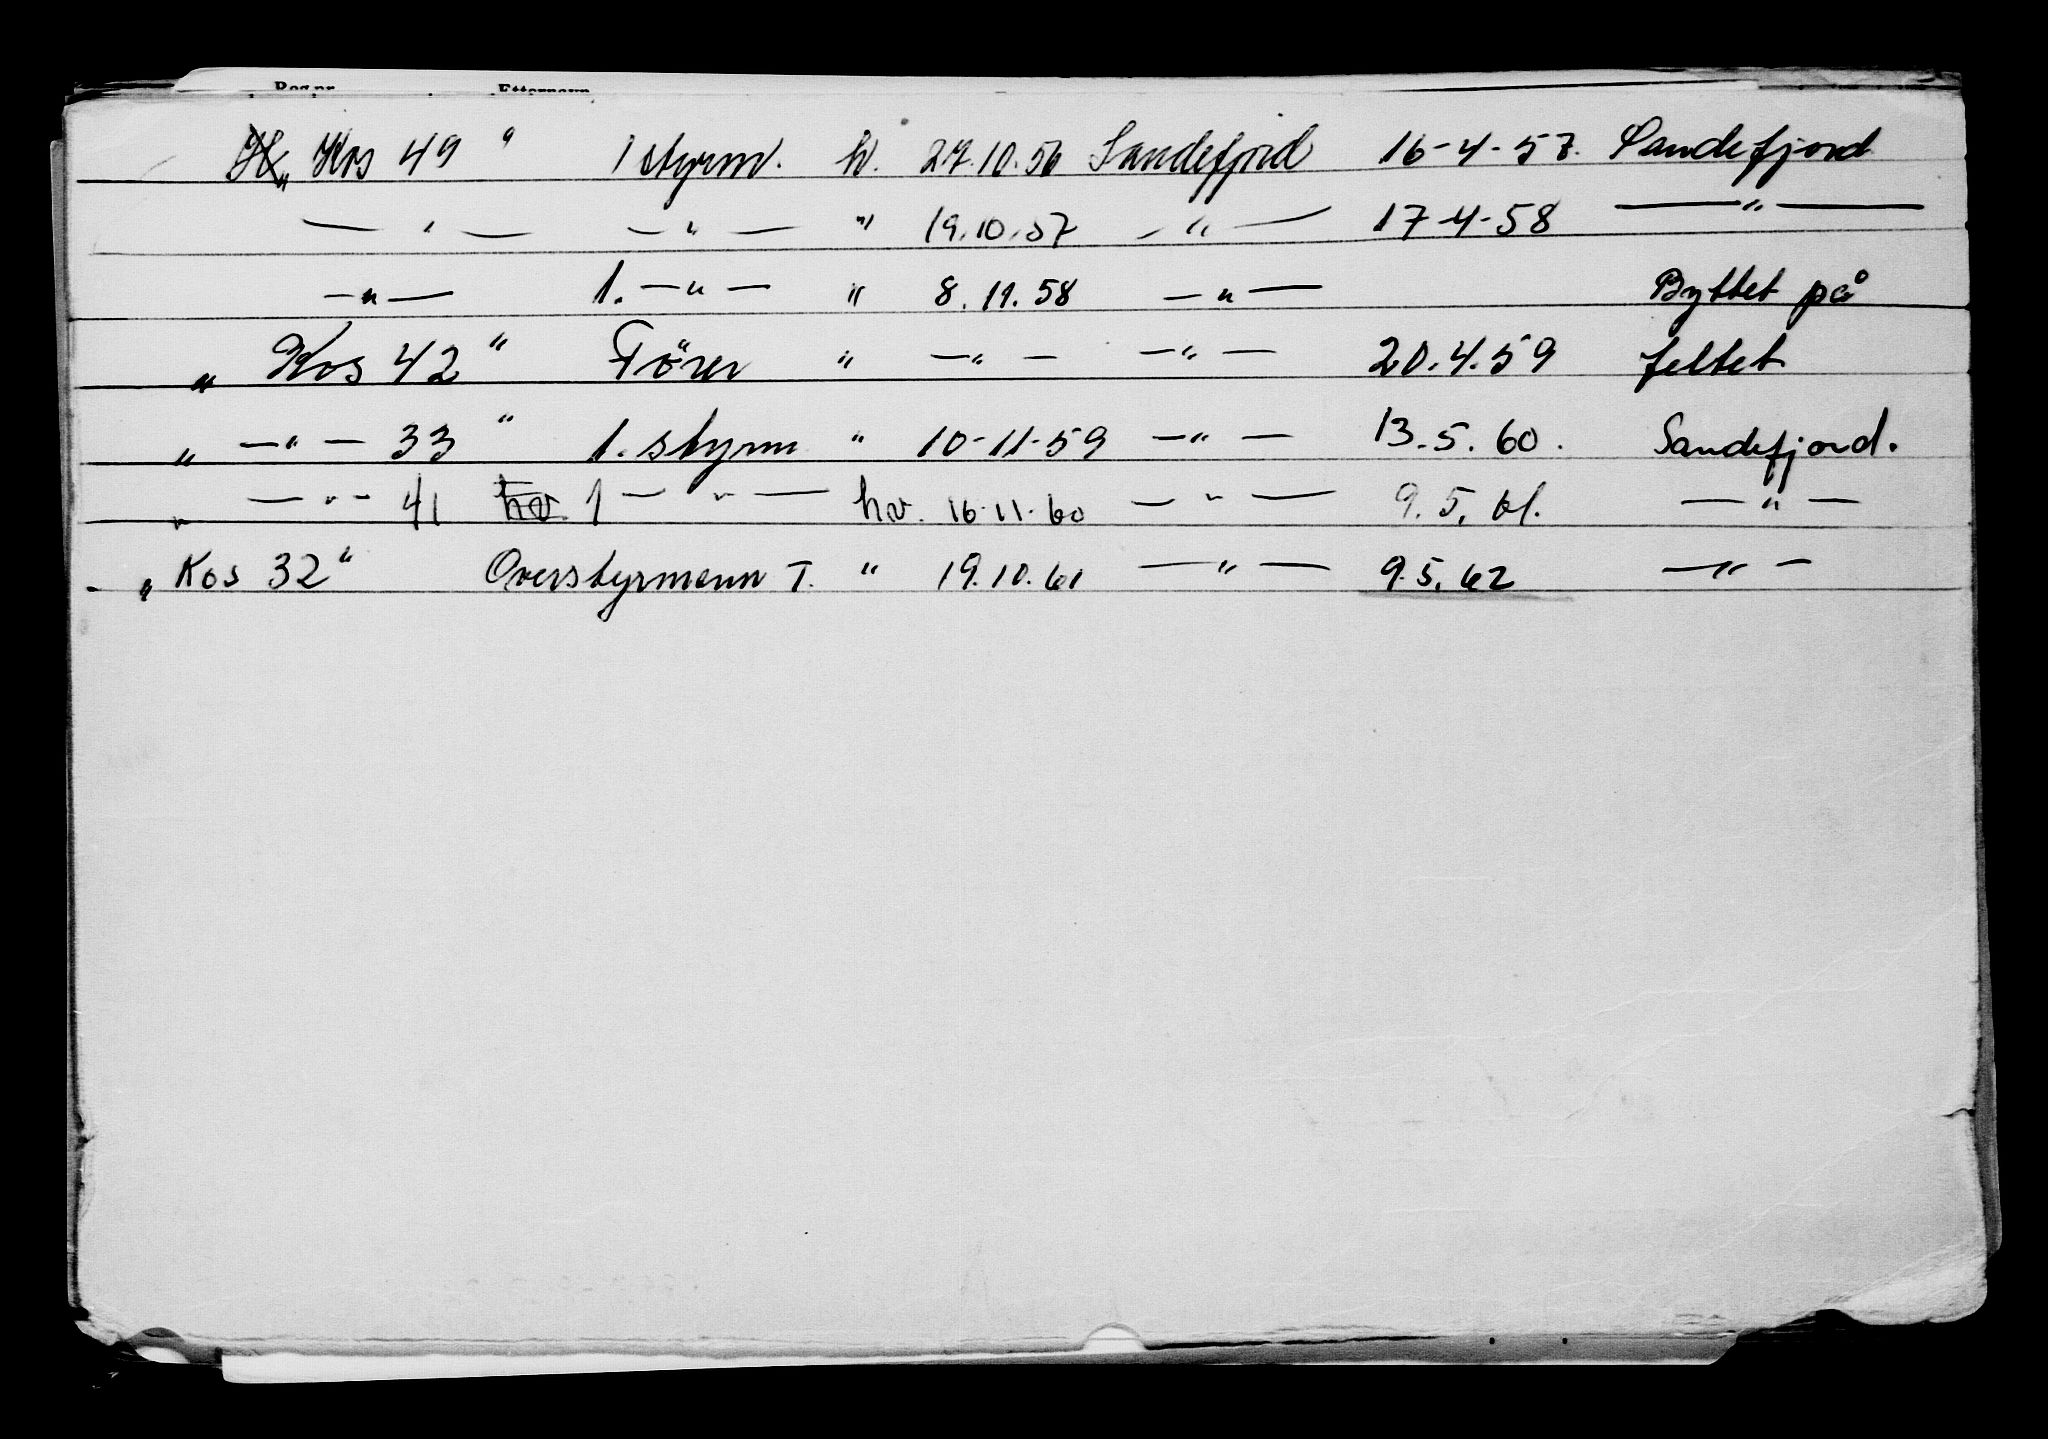 „ Kos 49 " 1 styrm. h. 27.10.56 Sandefjord 16-4-57. Sandefjord
— " — — " — " 19.10.57 — " — 17-4-58 — " —
— " — 1. — " — " 8.11.58 — " — Byttet på
„ Kos 42 " Förer " — " — — " — 20.4.59 feltet
„ — " — 33 " 1. styrm " 10-11-59 — " — 13.5.60. Sandefjord.
„ — " — 41 hv 1 — " — hv. 16.11.60 — " — 9.5.61. — " —
„ Kos 32 " Overstyrmann T. " 19.10.61 — " — 9.5.62 — " —